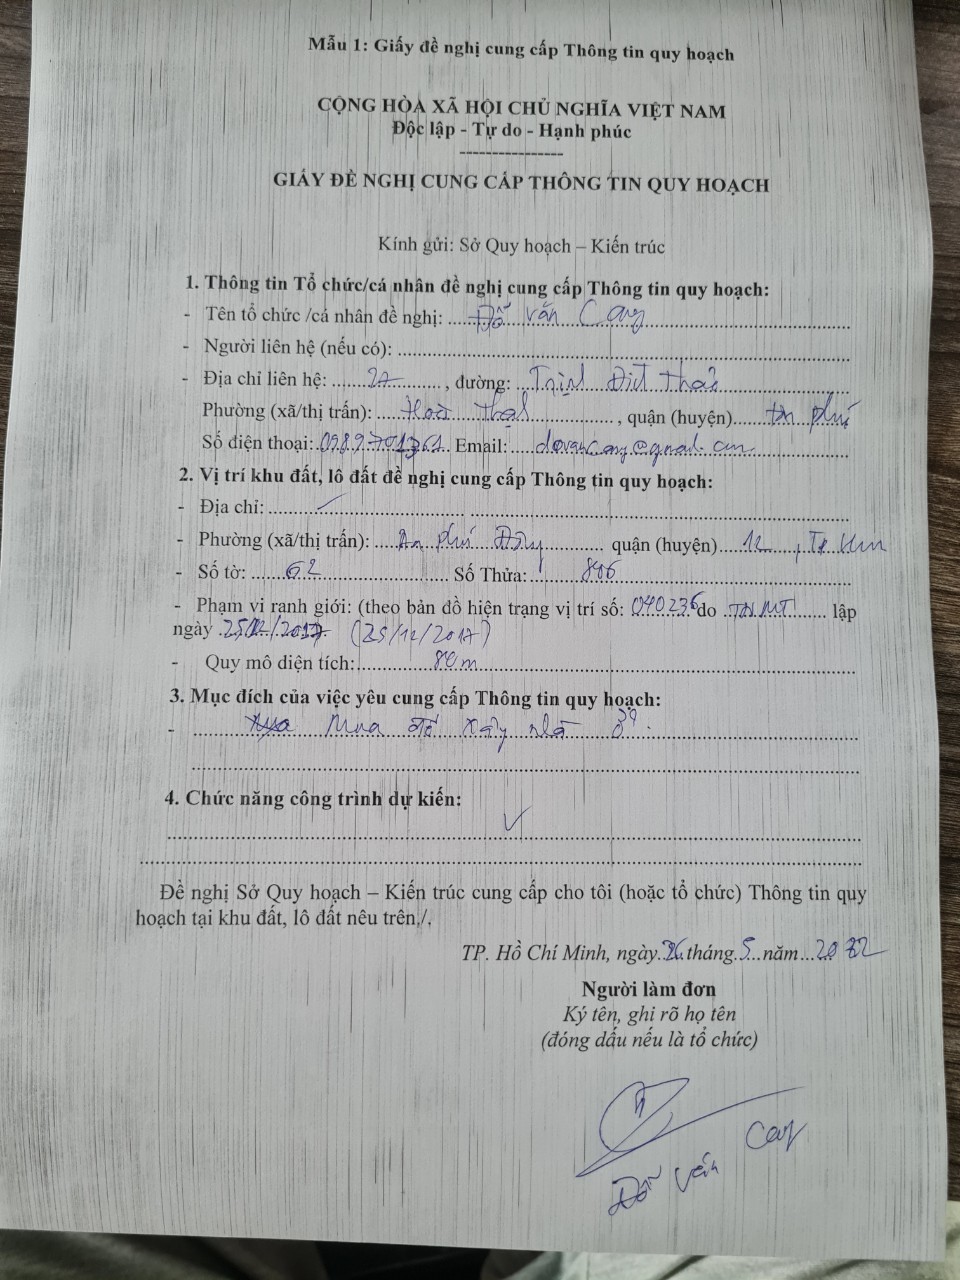 Mẫu 1: Giấy đề nghị cung cấp Thông tin quy hoạch
CỘNG HÒA XÃ HỘI CHỦ NGHĨA VIỆT NAM
Độc lập - Tự do - Hạnh phúc
----------------
GIẤY ĐỀ NGHỊ CUNG CẤP THÔNG TIN QUY HOẠCH
Kính gửi: Sở Quy hoạch – Kiến trúc
1. Thông tin Tổ chức/cá nhân đề nghị cung cấp Thông tin quy hoạch:
- Tên tổ chức /cá nhân đề nghị: Đỗ Văn Cay
- Người liên hệ (nếu có):
- Địa chỉ liên hệ: 27, đường: Trịnh Đình Thảo
Phường (xã/thị trấn): Hoà Thạnh, quận (huyện) tân phú
Số điện thoại: 0989701361. Email: dovancay@gmail.com
2. Vị trí khu đất, lô đất đề nghị cung cấp Thông tin quy hoạch:
- Địa chỉ:
- Phường (xã/thị trấn): An phú Đông quận (huyện) 12, Tp Hcm
- Số tờ: 62 Số Thửa: 806
- Phạm vi ranh giới: (theo bản đồ hiện trạng vị trí số: 040236 do TNMT lập
ngày (25/12/2017)
- Quy mô diện tích: 80m
3. Mục đích của việc yêu cung cấp Thông tin quy hoạch:
- Mua để xây nhà ở.
4. Chức năng công trình dự kiến:
Đề nghị Sở Quy hoạch – Kiến trúc cung cấp cho tôi (hoặc tổ chức) Thông tin quy
hoạch tại khu đất, lô đất nêu trên./.
TP. Hồ Chí Minh, ngày 26 tháng 5 năm 2022
Người làm đơn
Ký tên, ghi rõ họ tên
(đóng dấu nếu là tổ chức)
Đỗ Văn Cay